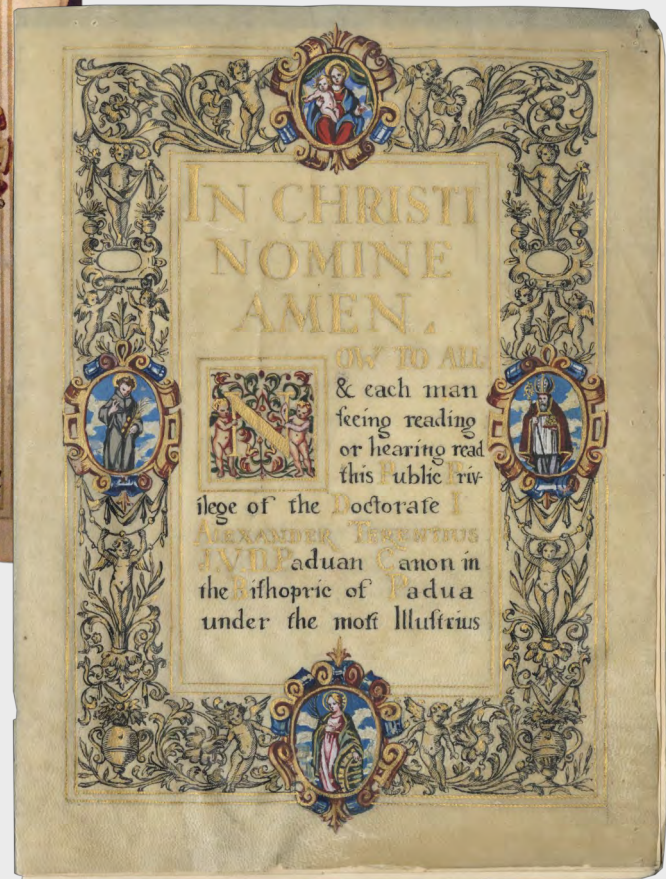 IN CHRISTI
NOMINE
AMEN.
NOW TO ALL
& each man
ſeeing reading
or hearing read
this Public Priv-
ilege of the Doctorate I
ALEXANDER TERENTIUS
J.V.D. Paduan Canon in
the Biſhopric of Padua
under the moſt Illuſtrius